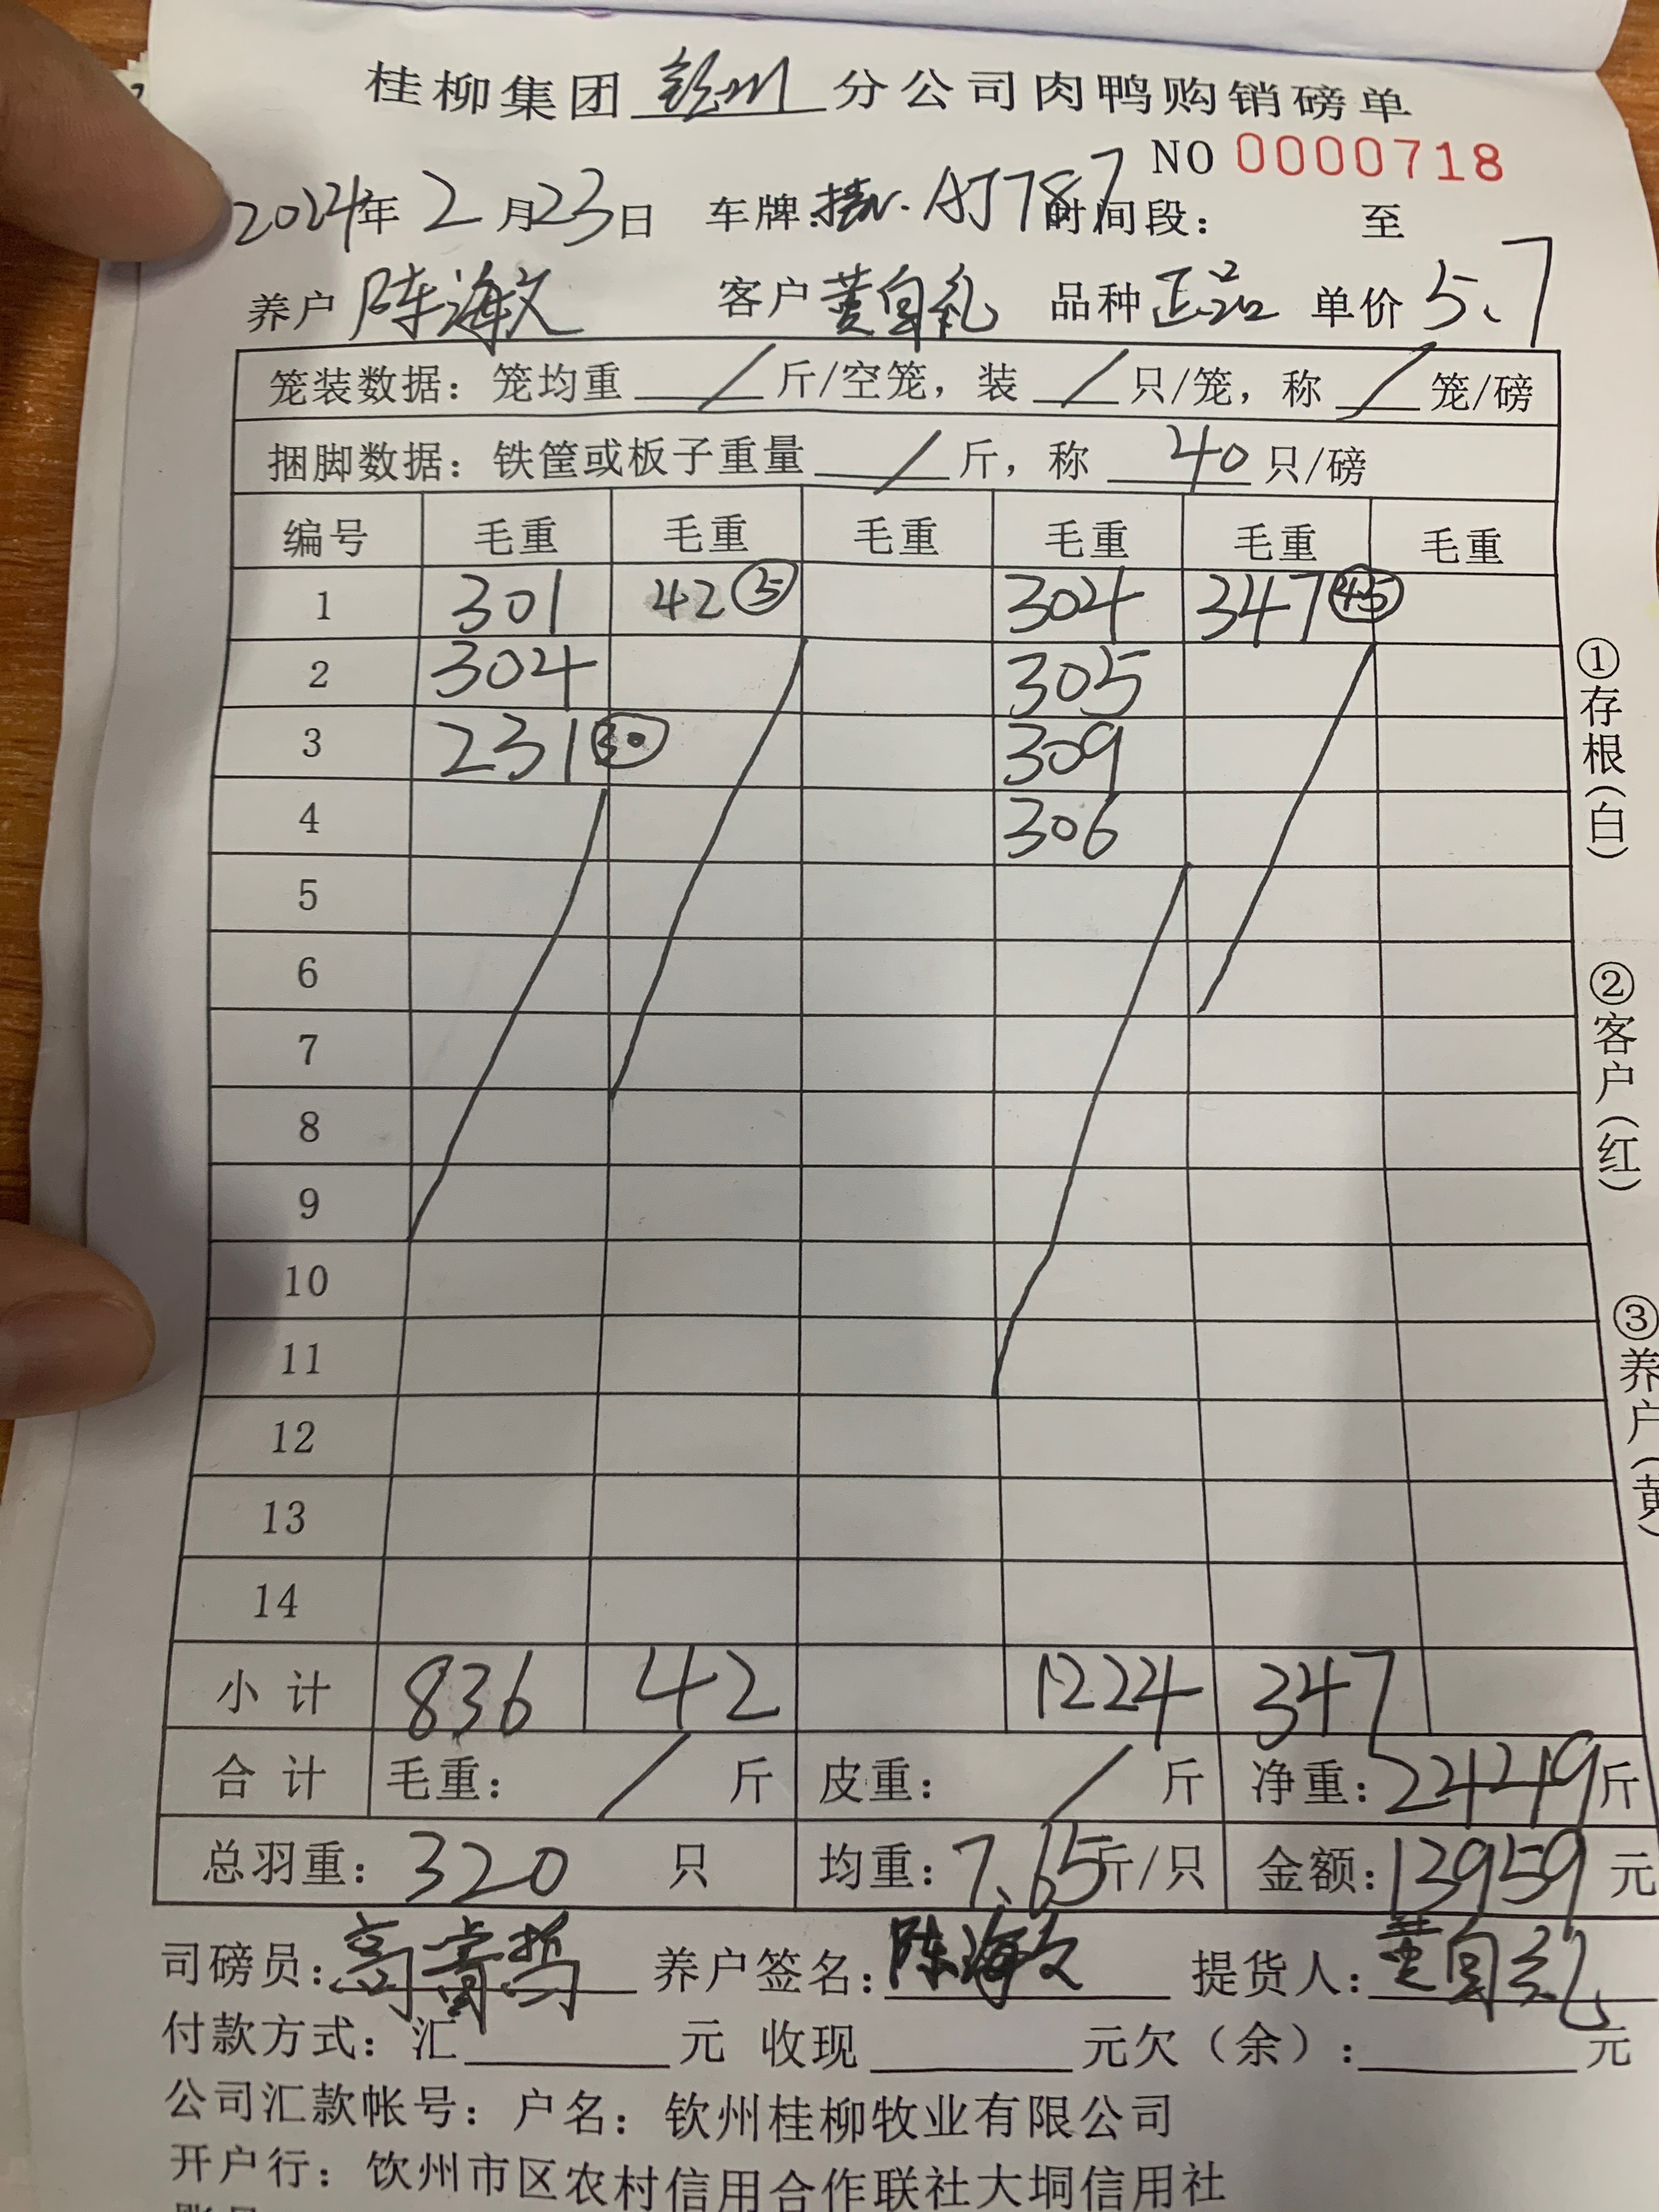 桂柳集团 钦州 分公司肉鸭购销磅单
NO 0000718
2024年 2月23日 车牌: AJ787 时间段: 至
养户 陈海文 客户 黄自礼 品种 正品 单价 5.7
笼装数据: 笼均重 / 斤/空笼, 装 / 只/笼, 称 / 笼/磅
捆脚数据: 铁筐或板子重量 / 斤, 称 40 只/磅
编号 毛重 毛重 毛重 毛重 毛重 毛重
1 301 42 ⑤ 304 347 ㊺
2 304 305
3 231 ㉚ 309
4 306
5
6
7
8
9
10
11
12
13
14
小计 836 42 1224 347
合计 毛重: / 斤 皮重: / 斤 净重: 2449斤
总羽重: 320 只 均重: 7.65斤/只 金额: 13959元
司磅员: 高睿哲 养户签名: 陈海文 提货人: 黄自礼
付款方式: 汇 元 收现 元欠(余): 元
公司汇款帐号: 户名: 钦州桂柳牧业有限公司
开户行: 钦州市区农村信用合作联社大垌信用社
①存根(白)
②客户(红)
③养户(黄)